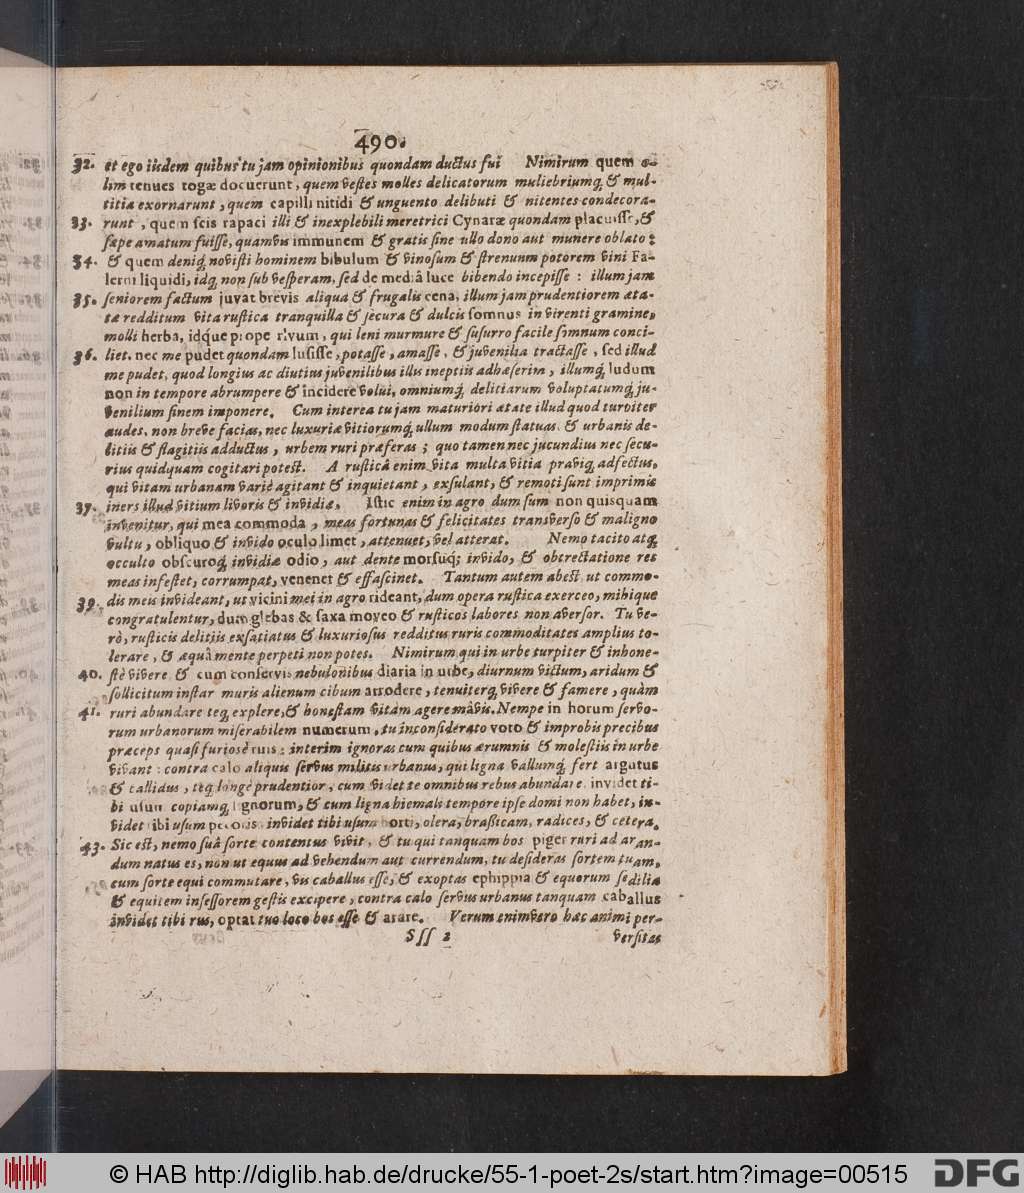 490.
32. et ego iisdem quibus tu jam opinionibus quondam ductus fui Nimirum quem o-
lim tenues togæ docuerunt, quem vestes molles delicatorum muliebriumq; & mul-
titia exornarunt, quem capilli nitidi & unguento delibuti & nitentes condecora-
33. runt, quem scis rapaci illi & inexplebili meretrici Cynaræ quondam placuisse, &
sæpe amatum fuisse, quamvis immunem & gratis sine ullo dono aut munere oblato:
34. & quem deniq; novisti hominem bibulum & vinosum & strenuum potorem vini Fa-
lerni liquidi, idq; non sub vesperam, sed de mediâ luce bibendo incepisse: illum jam
35. seniorem factum juvat brevis aliqua & frugalis cena, illum jam prudentiorem æta-
te redditum vita rustica tranquilla & secura & dulcis somnus in virenti gramine,
molli herba, idq́ue prope rivum, qui leni murmure & susurro facile somnum conci-
36. liet. nec me pudet quondam lusisse, potasse, amasse, & juvenilia tractasse, sed illud
me pudet, quod longius ac diutius juvenilibus illis ineptiis adhæserim, illumq; ludum
non in tempore abrumpere & incidere volui, omniumq; delitiarum voluptatumq; ju-
venilium finem imponere. Cum interea tu jam maturiori ætate illud quod turpiter
audes, non breve facias, nec luxuriæ vitiorumq; ullum modum statuas & urbanis de-
litiis & flagitiis adductus, urbem ruri præferas; quo tamen nec jucundius nec secu-
rius quidquam cogitari potest. A rusticâ enim vita multa vitia praviq; adfectus,
qui vitam urbanam variè agitant & inquietant, exsulant, & remoti sunt imprimis
37. iners illud vitium livoris & invidiæ. Istic enim in agro dum sum non quisquam
invenitur, qui mea commoda, meas fortunas & felicitates transverso & maligno
vultu, obliquo & invido oculo limet, attenuet, vel atterat. Nemo tacito atq;
occulto obscuroq; invidiæ odio, aut dente morsuq; invido, & obtrectatione res
meas infestet, corrumpat, venenet & effascinet. Tantum autem abest ut commo-
39. dis meis invideant, ut vicini mei in agro rideant, dum opera rustica exerceo, mihique
congratulentur, dum glebas & saxa moveo & rusticos labores non aversor. Tu ve-
rò, rusticis delitiis exsatiatus & luxuriosus redditus ruris commoditates amplius to-
lerare, & æquâ mente perpeti non potes. Nimirum qui in urbe turpiter & inhone-
40. stè vivere & cum conservis nebulonibus diaria in urbe, diurnum victum, aridum &
sollicitum instar muris alienum cibum arrodere, tenuiterq; vivere & famere, quàm
41. ruri abundare teq; explere, & honestam vitam agere mavis. Nempe in horum servo-
rum urbanorum miserabilem numerum, tu inconsiderato voto & improbis precibus
præceps quasi furiosè ruis: interim ignoras cum quibus ærumnis & molestiis in urbe
vivant: contra calo aliquis servus militis urbanus, qui ligna vallumq; fert argutus
& callidus, teq; longè prudentior, cum videt te omnibus rebus abundare, invidet ti-
bi usum copiamq; lignorum, & cum ligna hiemali tempore ipse domi non habet, in-
videt tibi usum pecoris invidet tibi usum horti, olera, brassicam, radices, & cetera.
43. Sic est, nemo suâ sorte contentus vivit, & tu qui tanquam bos piger ruri ad aran-
dum natus es, non ut equus ad vehendum aut currendum, tu desideras sortem tuam,
cum sorte equi commutare, vis caballus esse, & exoptas ephippia & equorum sedilia
& equitem insessorem gestis excipere, contra calo servus urbanus tanquam caballus
invidet tibi rus, optat tuo loco bos esse & arare. Verum enimvero hæc animi per-
Sſſ 2 versitas
© HAB http://diglib.hab.de/drucke/55-1-poet-2s/start.htm?image=00515 DFG